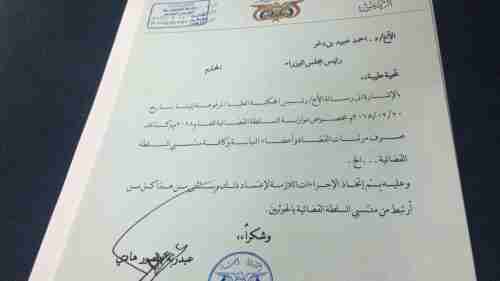 الرئيس
الأخ/ د. احمد عبيد بن دغر
رئيس مجلس الوزراء المحترم
تحية طيبة،،
الإشارة إلى رسالة الأخ/ رئيس المحكمة العليا المرفوعة إلينا بتاريخ
٢٠١٧/١٢/٢٠م بخصوص موازنة السلطة القضائية للعام ٢٠١٨م وكذلك
صرف مرتبات القضاة وأعضاء النيابة وكافة منتسبي السلطة
القضائية ....الخ.
وعليه يتم إتخاذ الإجراءات اللازمة لإعتماد ذلك ويستثنى من هذا كل من
أرتبط من منتسبي السلطة القضائية بالحوثيين.
وشكراً،،
عبدربه منصور هادي